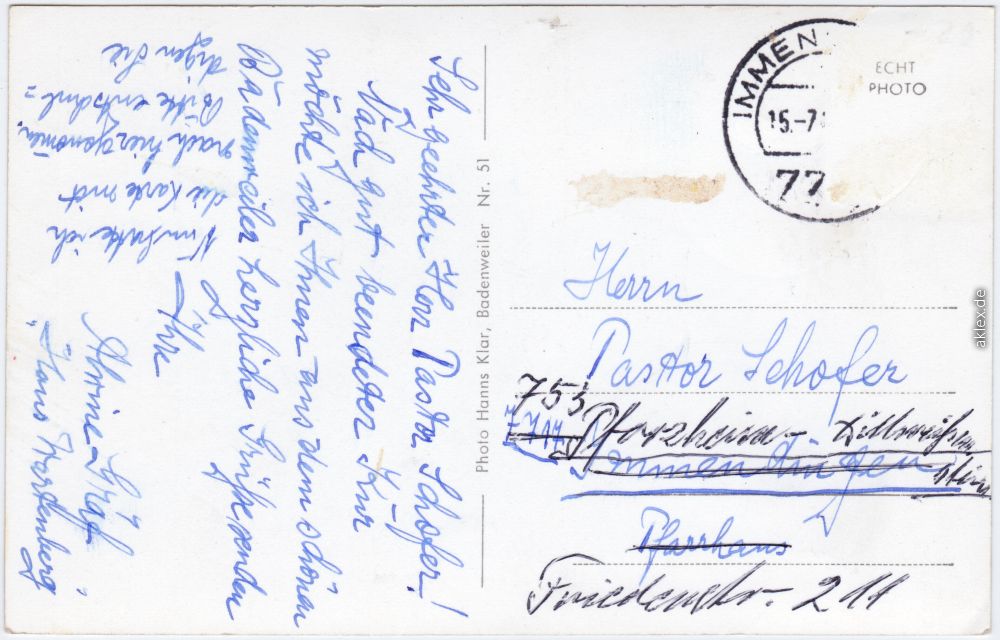 Sehr geehrter Herr Pastor Schofer!
Nach gut beendeter Kur
möchte ich Ihnen aus dem schönen
Badenweiler herzliche Grüße senden
Ihr
"Haus Wartenberg"
Nun hatte ich
die Karte mit
nach hier genommen,
Bitte entschul=
digen Sie
Photo Hanns Klar, Badenweiler Nr. 51
IMMEN
15.-7
77
ECHT
PHOTO
Herrn
Pastor Schofer
753
Pforzheim-
Immendingen
Pfarrhaus
Friedenstr. 211
aklex.de